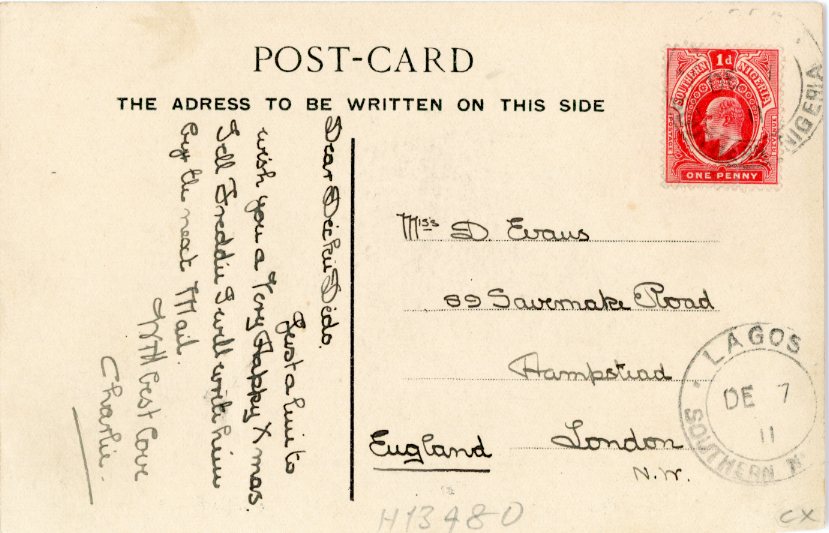 POST-CARD
THE ADRESS TO BE WRITTEN ON THIS SIDE
SOUTHERN NIGERIA
1d
REVENUE
ONE PENNY
NIGERIA
Dear Dickie Dido.
Just a line to
wish you a Very Happy Xmas.
Tell Freddie I will write him
by the next Mail.
With best Love
Charlie.
Miss D. Evans
69 Savernake Road
Hampstead
London
N.W.
England
LAGOS
DE 7
11
SOUTHERN N
H13480
CX